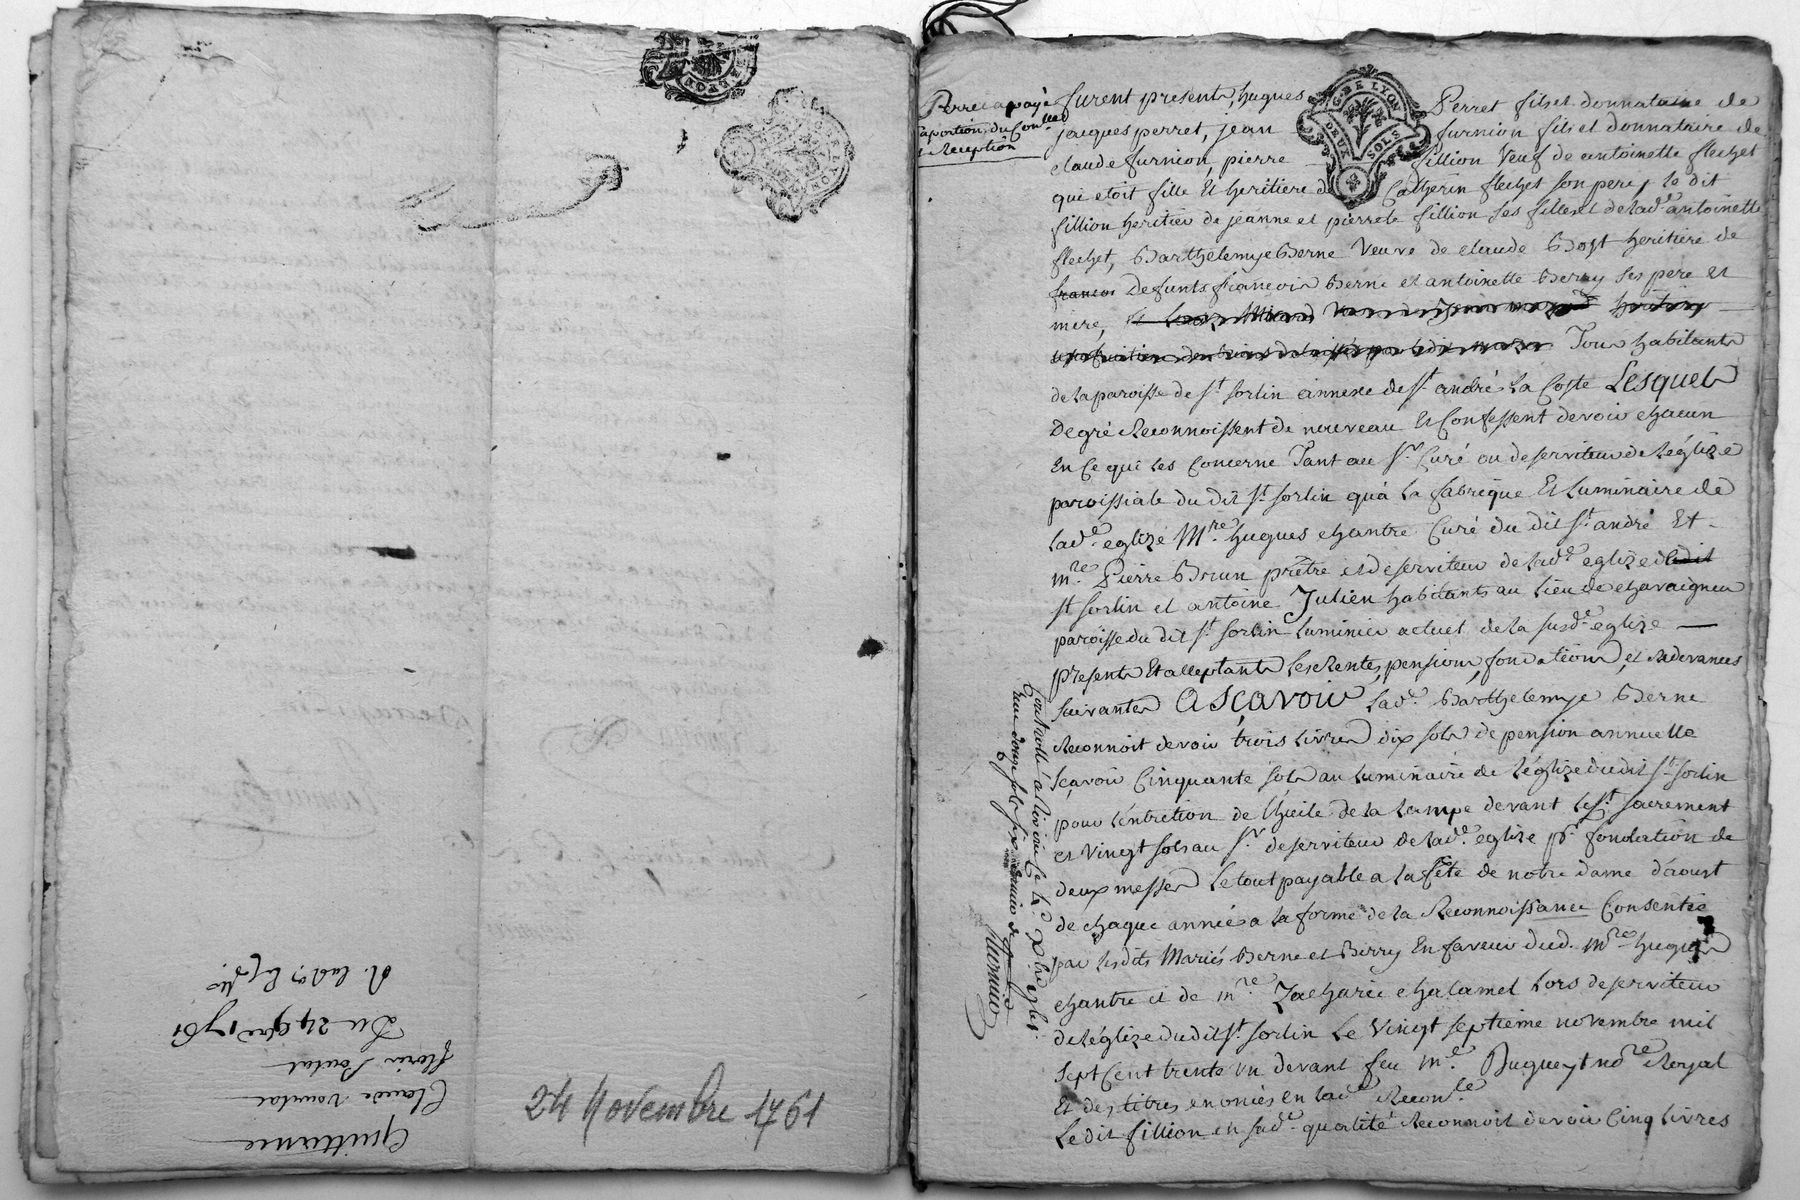 G. DE LYON
DEUX SOLS
Quittance
Claude
fleurie
Du 24 9bre 1761
24 Novembre 1761
Perret a payé
sa portion du Con.lle
& Reception
furent presents, hugues Perret fils et donnataire de
jacques perret, jean furnion fils et donnataire de
claude furnion, pierre fillion Veuf de antoinette flechet
qui etoit fille Et heritiere de Catherin flechet son pere, le dit
fillion heritier de jeanne et pierrette fillion ses filles et de lad.e antoinette
flechet, Barthelemye Berne Veuve de claude Bost heritiere de
francois Defunts francois Berne et antoinette Berry ses pere et
mere, Tous habitants
de la paroisse de st sorlin annexe de st andré La Coste Lesquels
De gré Reconnoissent de nouveau Et Confessent devoir chacun
En Ce qui Les Concerne Tant au sr. Curé ou deserviteur de L'églize
paroissiale du dit st sorlin qu'à La fabrique Et Luminaire de
lad.e eglize Mre. hugues chantre Curé du dit st. andré Et
mre. Pierre Brun prêtre et deserviteur de lad.e eglize dudit
st sorlin et antoine Julien habitants au Lieu de chavaigneu
paroisse du dit st. sorlin Luminier actuel de la susd.e eglize
presents Et acceptants Les Rentes, pensions, fondations, et Redevances
suivantes A Sçavoir Lad.e Barthelemye Berne
Reconnoit devoir trois Livres dix sols de pension annuelle
sçavoir Cinquante sols au Luminaire de L'églize dudit st. sorlin
pour L'entretien de L'huile de la Lampe devant Le st. sacrement
et Vingt sols au sr. deserviteur de lad.e eglize pr. fondation de
deux messes Le tout payable a La fête de notre dame d'aoust
de chaque année a la forme de la Reconnoissance Consentie
par Lesdits Mariés Berne et Berry En faveur dud. mre. hugues
chantre et de mre. Zacharie chalamel Lors deserviteur
de L'églize dudit st. sorlin Le Vingt septieme novembre mil
sept Cent trente un devant feu me. Bugueyt nore. Royal
Et des titres enoncés en lad.e Recon.ce
Le dit fillion en sad.e qualité Reconnoit devoir Cinq Livres
Controllé a Riverie Le